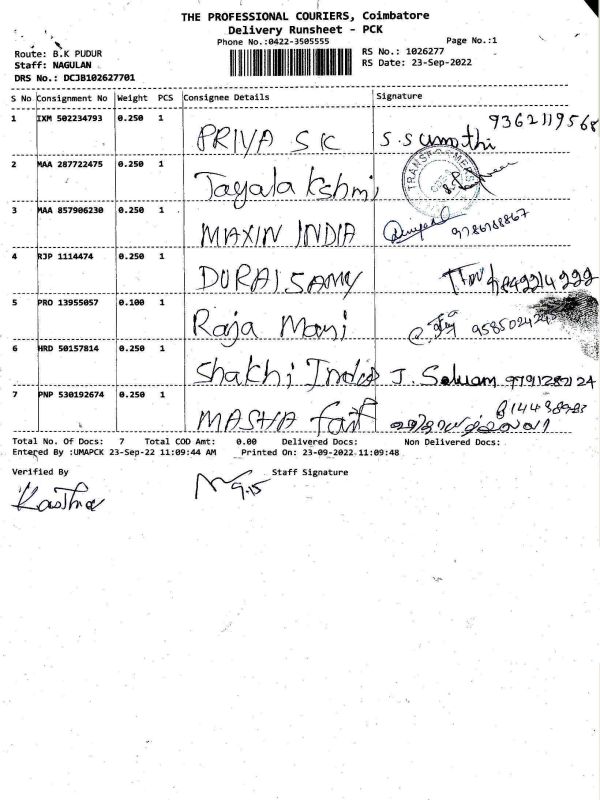 THE PROFESSIONAL COURIERS, Coimbatore
Delivery Runsheet - PCK
Phone No.:0422-3505555
Page No.:1
Route: B.K PUDUR
RS No.: 1026277
Staff: NAGULAN
RS Date: 23-Sep-2022
DRS No.: DCJB102627701
S No Consignment No Weight PCS Consignee Details Signature
1 IXM 502234793 0.250 1 PRIYA SK S.Sumathi 9362119568
2 MAA 287722475 0.250 1 Jayalakshmi
3 MAA 857906230 0.250 1 MAXIN INDIA
4 RJP 1114474 0.250 1 DURAISAMY
5 PRO 13955057 0.100 1 Raja Mani
6 HRD 50157814 0.250 1 Shakhi India J. Selvam
7 PNP 530192674 0.250 1 MASHA
Total No. Of Docs: 7 Total COD Amt: 0.00 Delivered Docs: Non Delivered Docs:
Entered By :UMAPCK 23-Sep-22 11:09:44 AM Printed On: 23-09-2022 11:09:48
Verified By Staff Signature
9.15